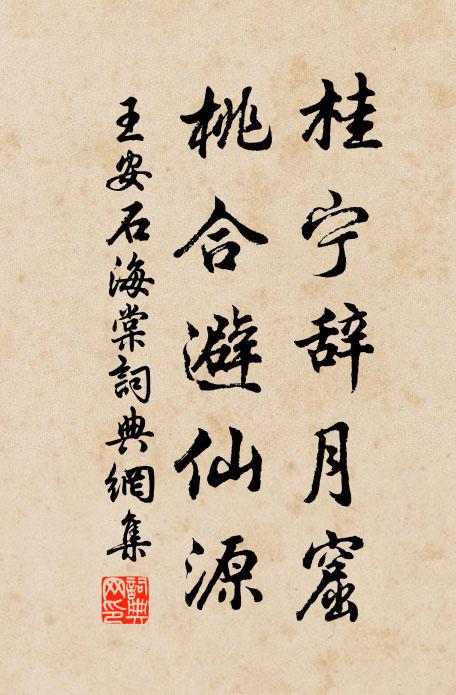 桂宁辞月窟
桃合避仙源
王安石海棠詞典網集
詞典網印